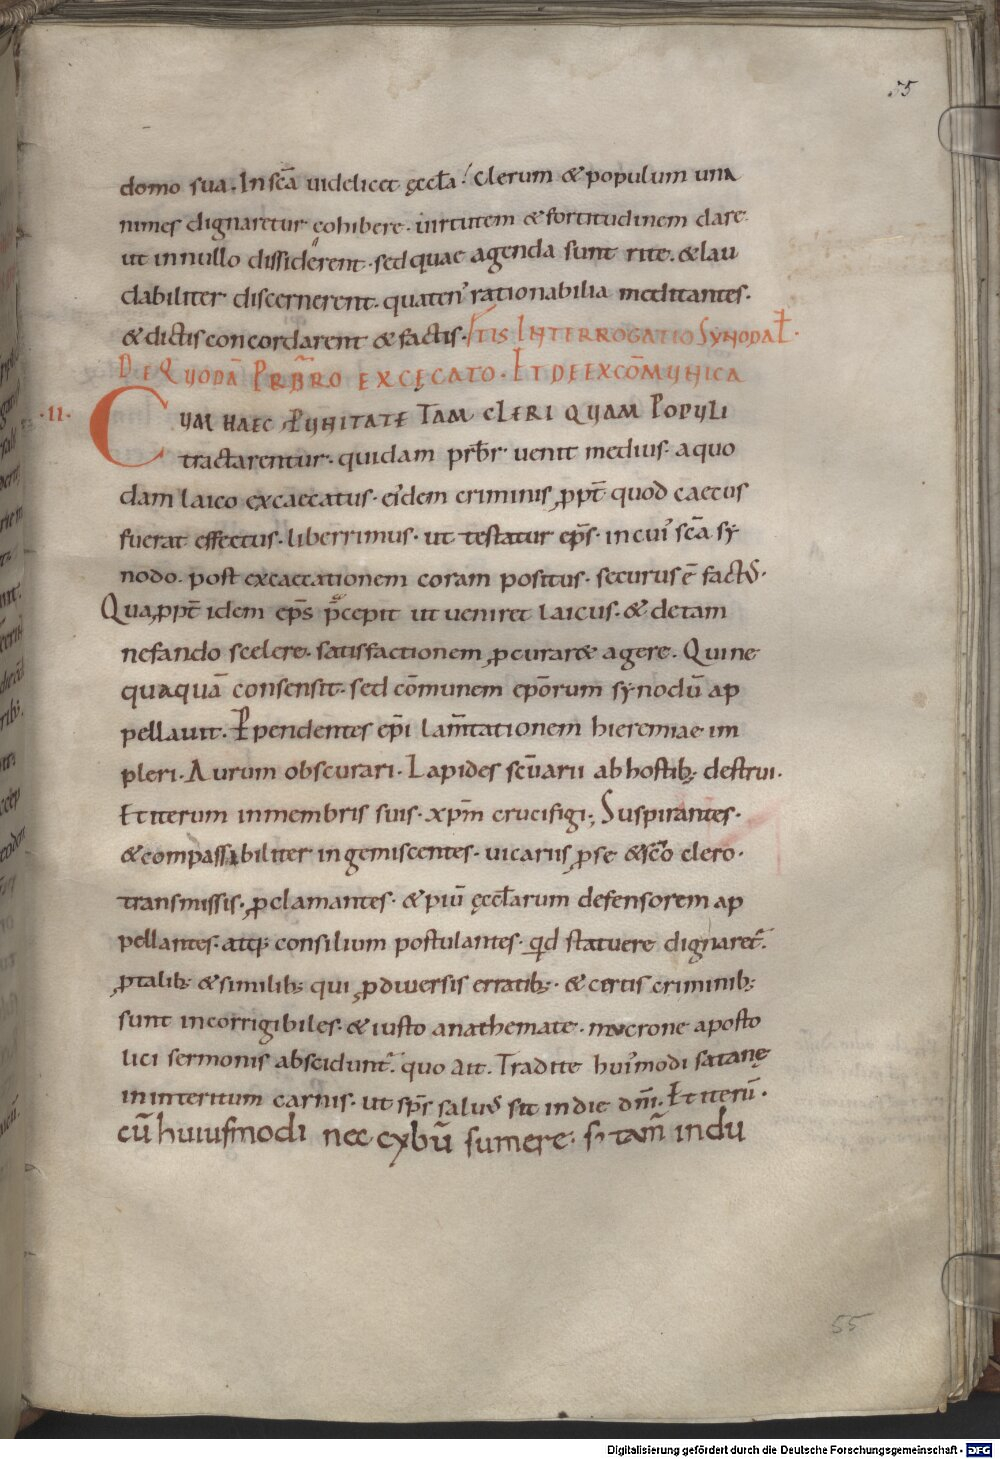 55
domo sua. In scā uidelicet ęcclā. clerum & populum una
nimes dignaretur cohibere. uirtutem & fortitudinem dare.
ut in nullo dissiderent. sed quae agenda sunt rite. & lau
dabiliter discernerent. quaten' rationabilia meditantes.
& dictis concordarent & factis. INTERROGATIO SYNODAŁ.
DE QUODĀ PRB̄RO EXCĘCATO. ET DE EXCŌMUNICA
.II. CUM HAEC PUNITATE TAM CLERI QUAM POPULI
tractarentur. quidam prb̄r uenit medius. a quo
dam laico excaecatus. eidem criminis ꝓpt̄ quod caecus
fuerat effectus. liberrimus. ut testatur ep̄s. in cui' scā sy
nodo. post excaecationem coram positus. securus ē fact'.
Quaꝓpt̄ idem ep̄s p̄cepit ut ueniret laicus. & de tam
nefando scelere. satisfactionem ꝓcurar& agere. Qui ne
quaquā consensit. sed cōmunem epōrum synodū ap
pellauit. Ꝑpendentes ep̄i lam̄tationem hieremiae im
pleri. Aurum obscurari. Lapides scūarii ab hostib; destrui.
Et iterum in membris suis. xp̄m crucifigi; Suspirantes.
& compassibiliter ingemiscentes. uicariis ꝓ se & scō clero.
transmissis. ꝓclamantes. & piū ęccłarum defensorem ap
pellantes. atq; consilium postulantes. qđ statuere dignaret̄.
ꝓ talib; & similib; qui ꝓ diuersis erratib; & certis criminib;
sunt incorrigibiles. & iusto anathemate. mucrone aposto
lici sermonis abscidunt̄. quo ait. Tradite hui'modi satanę
in interitum carnis. ut sp̄s saluꝰ sit in die dn̄i. Et iterū.
cū huiusmodi nec cybū sumere. si tam̄ indu
55
Digitalisierung gefördert durch die Deutsche Forschungsgemeinschaft - DFG